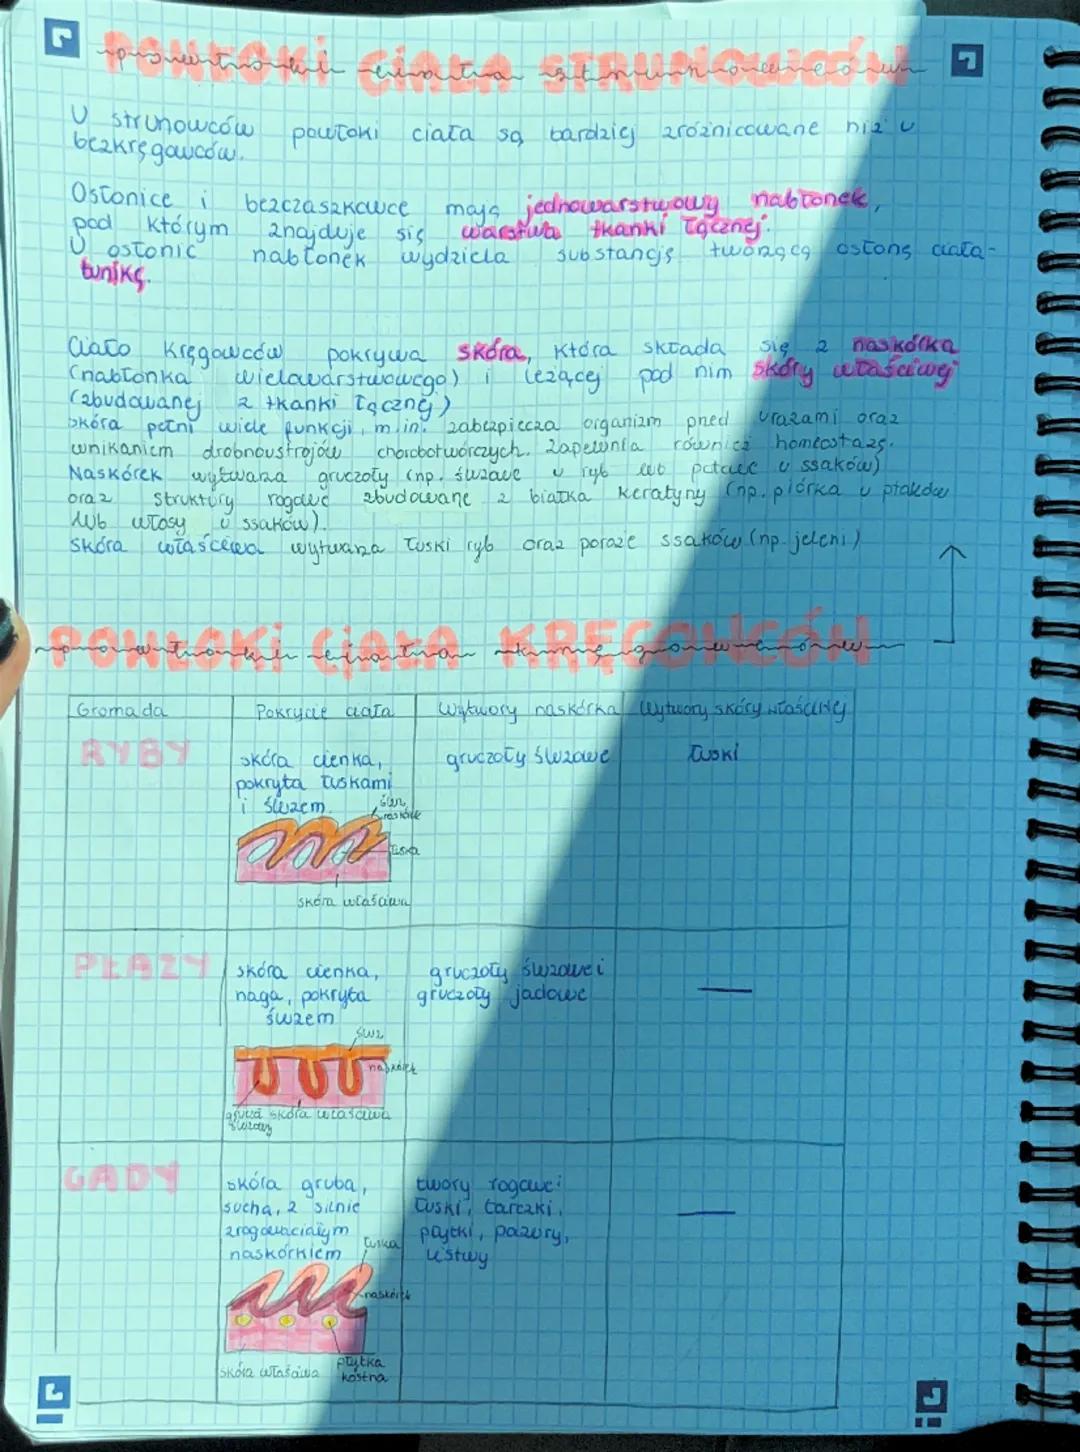 POWŁOKI CIAŁA STRUNOWCÓW
U strunowców powłoki ciała są bardziej zróżnicowane niż u
bezkręgowców.
Osłonice i bezczaszkowce mają jednowarstwowy nabłonek,
pod którym znajduje się warstwa tkanki łącznej.
U osłonic nabłonek wydziela substancję tworzącą osłonę ciała-
tunikę.
Ciało kręgowców pokrywa skóra, która składa się z naskórka
(nabłonka wielowarstwowego) i leżącej pod nim skóry właściwej
(zbudowanej z tkanki łącznej)
skóra pełni wiele funkcji, m.in. zabezpiecza organizm przed urazami oraz
wnikaniem drobnoustrojów chorobotwórczych. Zapewnia również homeostazę.
Naskórek wytwarza gruczoły (np. śluzowe u ryb lub potowe u ssaków)
oraz struktury rogowe zbudowane z białka keratyny (np. piórka u ptaków
lub włosy u ssaków).
Skóra właściwa wytwarza łuski ryb oraz poroże ssaków (np. jeleni)
POWŁOKI CIAŁA KRĘGOWCÓW
Gromada Pokrycie ciała Wytwory naskórka Wytwory skóry właściwej
RYBY
skóra cienka,
pokryta łuskami
i śluzem
gruczoły śluzowe
łuski
śluz
naskórek
łuska
skóra właściwa
PŁAZY
skóra cienka,
naga, pokryta
śluzem
gruczoły śluzowe i
gruczoły jadowe
—
śluz
naskórek
skóra właściwa
śluzowy
GADY
skóra gruba,
sucha, z silnie
zrogowaciałym
naskórkiem
twory rogowe:
łuski, tarczki,
płytki, pazury,
—
łuska
naskórek
skóra właściwa
płytka
kostna